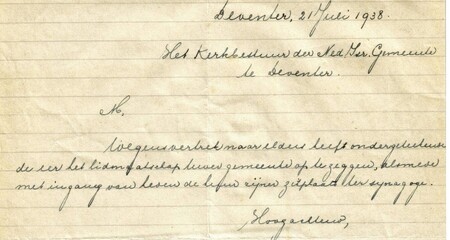 Deventer, 21 Juli 1938.
Het Kerkbestuur der Ned. Isr. Gemeente
te Deventer.
M,
Wegens vertrek naar elders heeft ondergeteekende
de eer het lidmaatschap Uwer gemeente op te zeggen, alsmede
met ingang van heden de huur zijner zitplaats der synagoge.
Hoogachtend,